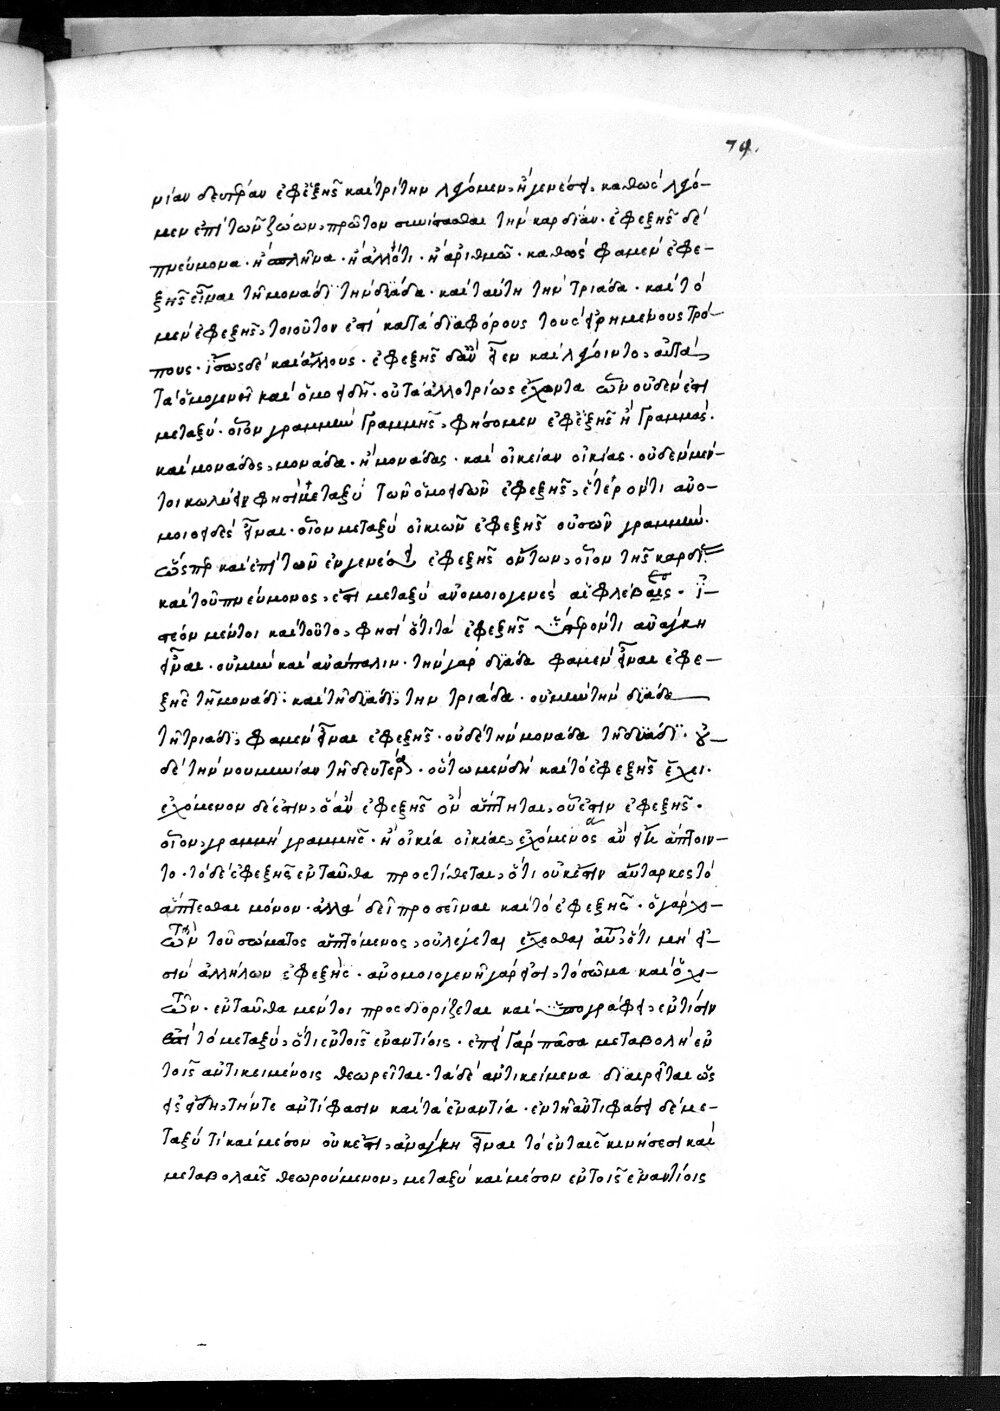 74.
μίαν δευτέραν ἐφεξῆς καὶ τρίτην λέγομεν, ἢ γενέσει, καθὼς λέγο-
μεν ἐπὶ τῶν ζώων, πρῶτον συνίστασθαι τὴν καρδίαν· ἐφεξῆς δὲ
πνεύμονα· ἢ σπλῆνα· ἢ ἄλλό τι· ἢ ἀριθμῶ· καθὼς φαμὲν ἐφε-
ξῆς εἶναι τῆ μονάδι τὴν δυάδα· καὶ ταύτη τὴν τριάδα· καὶ τὸ
μὲν ἐφεξῆς, τοιοῦτον ἐστὶ κατὰ διαφόρους τοὺς εἰρημένους τρό-
πους· ἴσως δὲ καὶ ἄλλους· ἐφεξῆς δ' ἂν εἶεν καὶ λέγοιντο, αὐτὰ
τὰ ὁμογενῆ καὶ ὁμοειδῆ· οὕτω ἀλλοτρίως ἔχοντα ὧν οὐδὲν ἐστὶ
μεταξύ· οἷον γραμμὴν γραμμῆς, φήσομεν ἐφεξῆς ἢ γραμμάς·
καὶ μονάδος, μονάδα· ἢ μονάδας· καὶ οἰκείαν οἰκίας· οὐδὲν μέν-
τοι κωλύειν φησὶ μεταξὺ τῶν ὁμοειδῶν ἐφεξῆς, ἕτερόν τι ἀνο-
μοιοειδὲς εἶναι· οἷον μεταξὺ οἰκιῶν ἐφεξῆς οὐσῶν γραμμήν·
ὥσπερ καὶ ἐπὶ τῶν ἐν γενέσει ἐφεξῆς ὄντων, οἷον τῆς καρδίας
καὶ τοῦ πνεύμονος, ἔστι μεταξὺ ἀνομοιογενὲς αἱ φλέβες· ἰ-
στέον μέντοι καὶ τοῦτο, φησὶ ὅτι τὰ ἐφεξῆς ὕστερόν τι ἀνάγκη
εἶναι· οὐ μὴν καὶ ἀνάπαλιν· τὴν γὰρ δυάδα φαμὲν εἶναι ἐφε-
ξῆς τῆ μονάδι· καὶ τῆ δυάδι, τὴν τριάδα· οὐ μὴν τὴν δυάδα
τῆ τριάδι, φαμὲν εἶναι ἐφεξῆς· οὐδὲ τὴν μονάδα τῆ δυάδι· οὐ-
δὲ τὴν νουμηνίαν τῆ δευτέρα· οὕτω μὲν δὴ καὶ τὸ ἐφεξῆς ἔχει·
ἐχόμενον δέ ἐστιν, ὃ ἂν ἐφεξῆς ὂν ἅπτηται, οὗ ἐστιν ἐφεξῆς·
οἷον, γραμμὴ γραμμῆς· ἢ οἰκία οἰκίας, ἐχόμενος ἂν εἶεν ἅπτοιν-
το· τὸ δὲ ἐφεξῆς ἐνταῦθα προστίθεται, ὅτι οὐκ ἔστιν αὔταρκες τὸ
ἅπτεσθαι μόνον· ἀλλὰ δεῖ προσεῖναι καὶ τὸ ἐφεξῆς· ὁ γὰρ χι-
τὼν τοῦ σώματος ἁπτόμενος, οὐ λέγεται ἔχεσθαι αὐτοῦ, ὅτι μή εἰ-
σιν ἀλλήλων ἐφεξῆς· ἀνομοιογενῆ γάρ εἰσι, τὸ σῶμα καὶ ὁ χι-
τών· ἐνταῦθα μέντοι προσδιορίζεται καὶ ὑπογράφει, ἐν τίσιν
ἐστὶ τὸ μεταξύ, ὅτι ἐν τοῖς ἐναντίοις· ἐπεὶ γὰρ πᾶσα μεταβολὴ ἐν
τοῖς ἀντικειμένοις θεωρεῖται· τὰ δὲ ἀντικείμενα διαιρεῖται ὡς
εἰς εἴδη, τήν τε ἀντίφασιν καὶ τὰ ἐναντία· ἐν τῆ ἀντιφάσει δὲ με-
ταξύ τι καὶ μέσον οὐκ ἔστι, ἀνάγκη εἶναι τὸ ἐν ταῖς κινήσεσι καὶ
μεταβολαῖς θεωρούμενον, μεταξὺ καὶ μέσον ἐν τοῖς ἐναντίοις